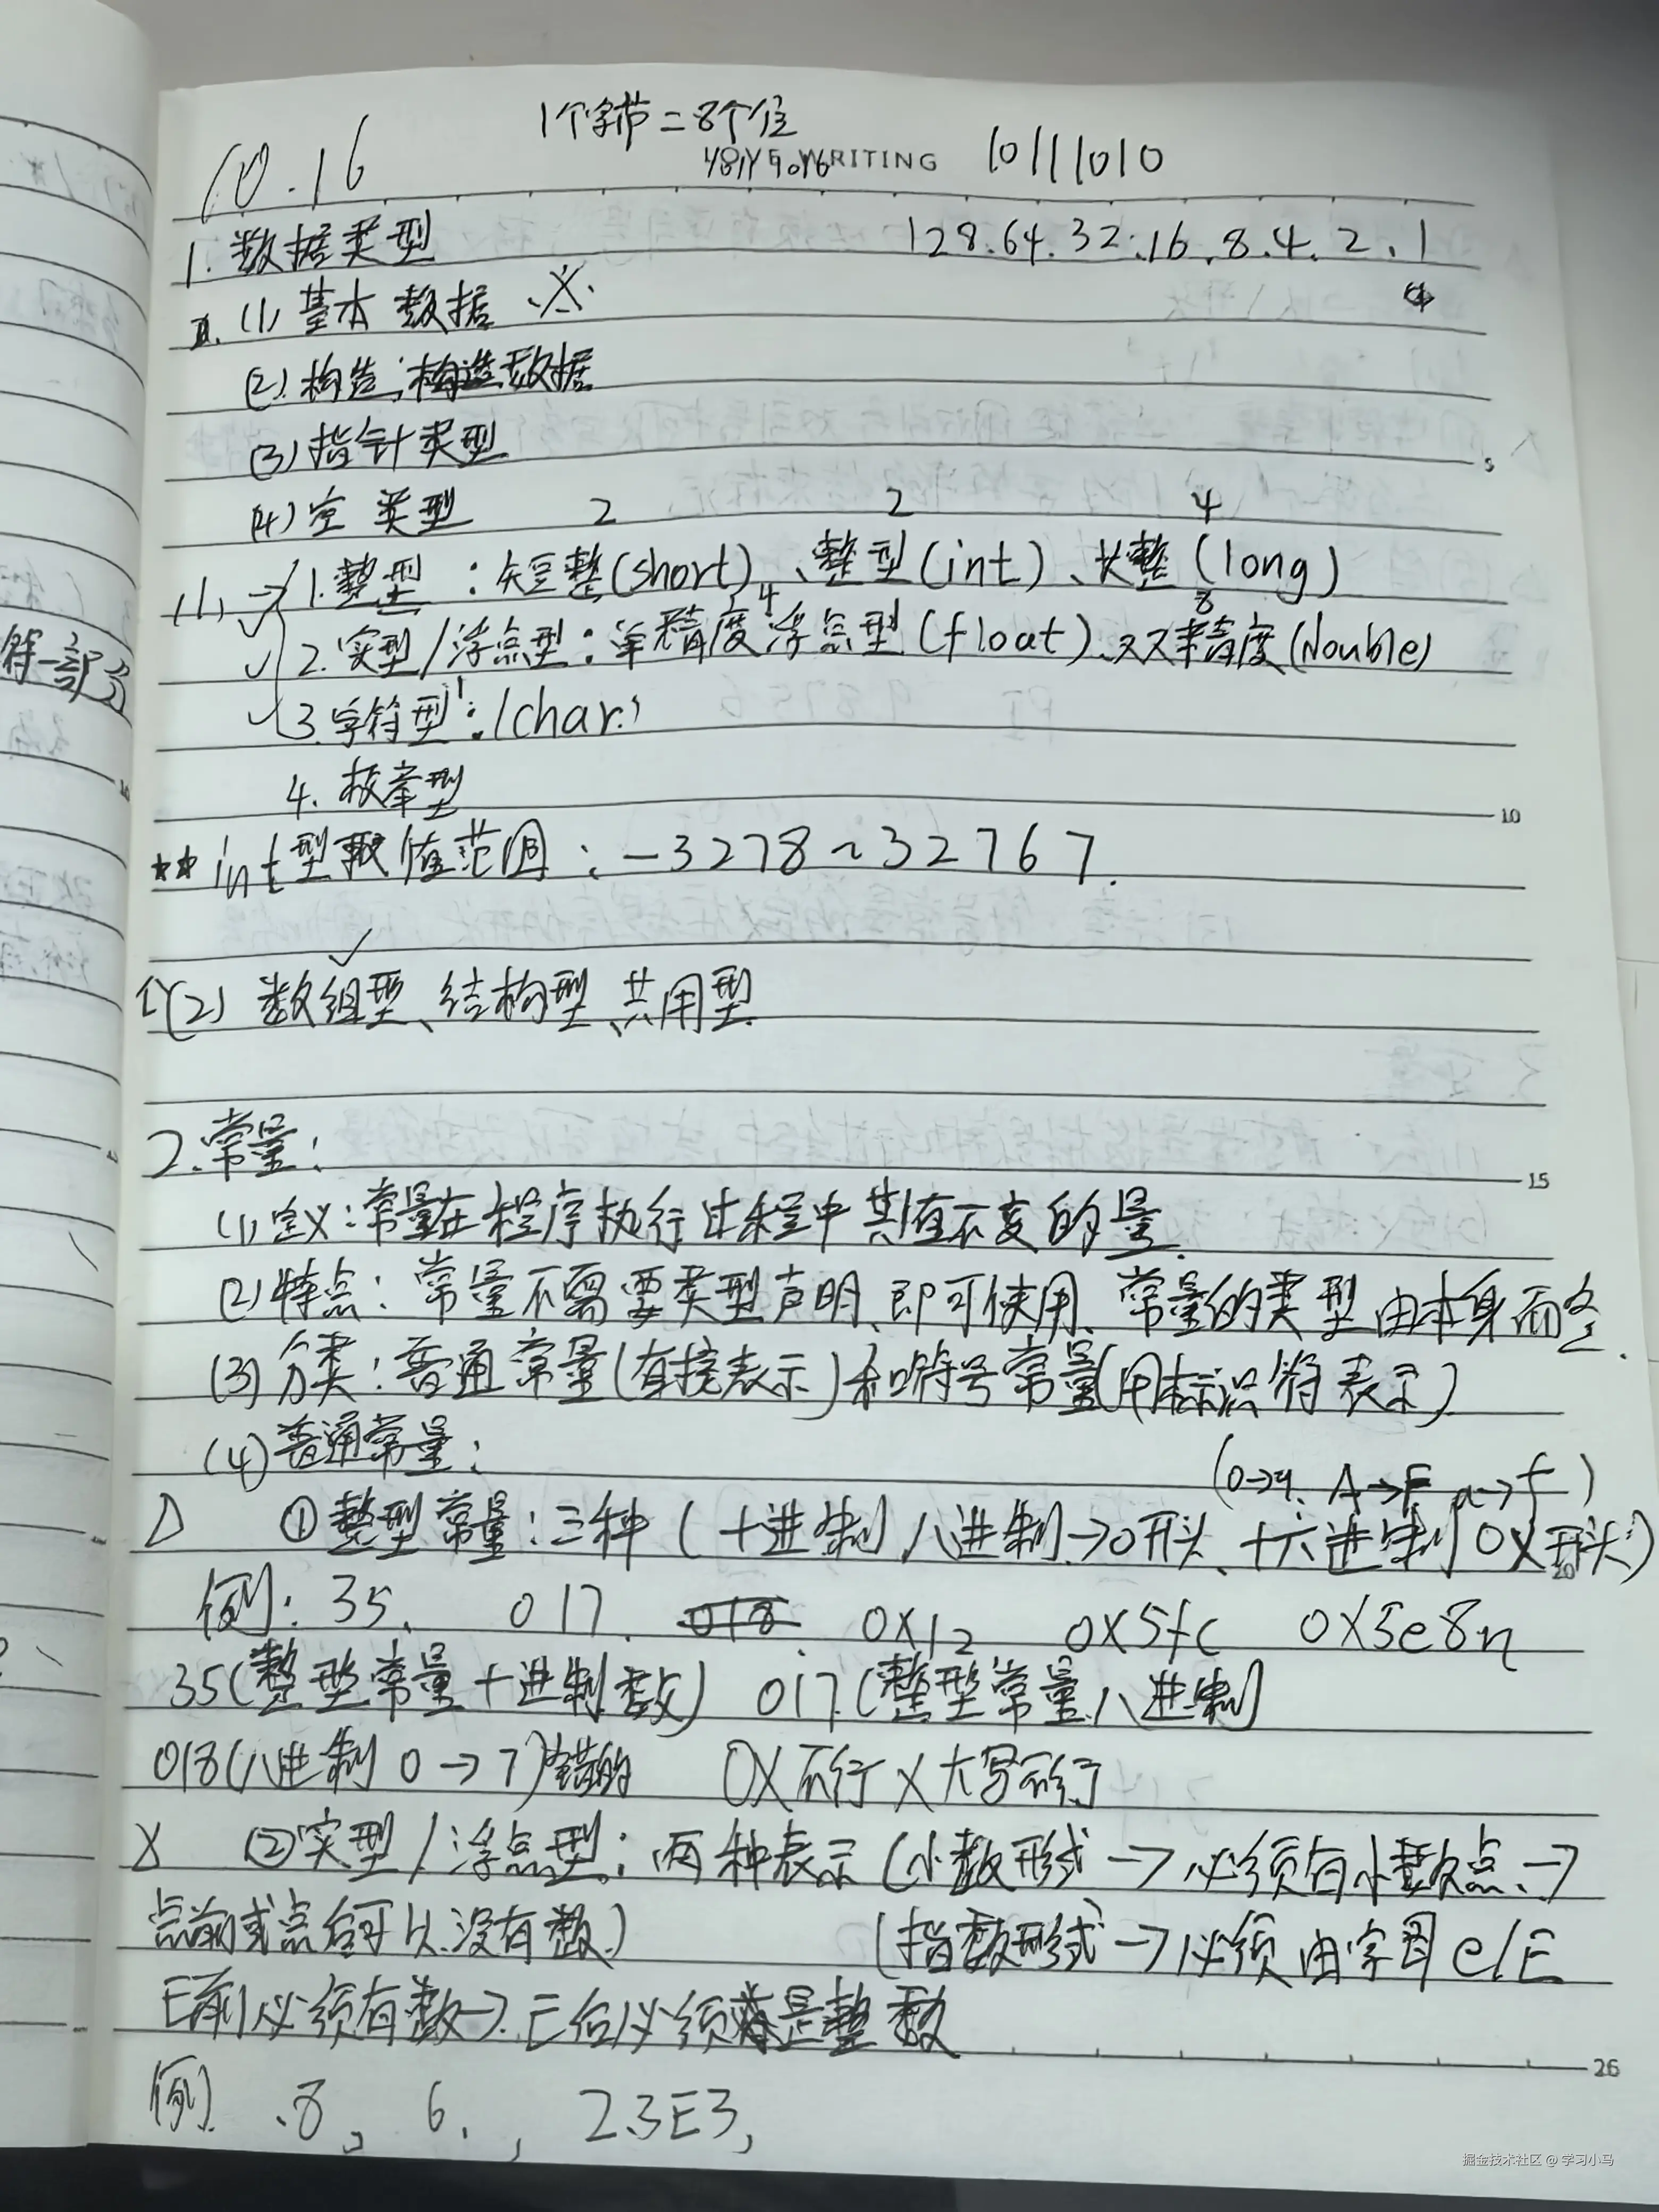 1个字节=8个位
10.16
WRITING
10111010
1.数据类型
128.64.32.16.8.4.2.1
(1)基本数据
(2)构造:构造数据
(3)指针类型
(4)空类型
2 2 4
(1)→1.整型:短整(short)、整型(int)、长整(long)
4 8
2.实型/浮点型:单精度浮点型(float)、双精度(double)
3.字符型:(char)
1
4.枚举型
**int型取值范围:-3278~32767.
5
10
(2)数组型、结构型、共用型
2.常量:
15
(1)定义:常量在程序执行过程中其值不变的量.
(2)特点:常量不需要类型声明、即可使用、常量的类型由本身而定.
(3)分类:普通常量(直接表示)和符号常量(用标识符表示)
(4)普通常量:
(0→9、A→F a→f)
①整型常量:三种(十进制,八进制→0开头、十六进制0X开头)
20
例:35、 017. 018. 0X12 0X5fc 0X3e8n
35(整型常量十进制数) 017.(整型常量八进制)
018(八进制0→7)错的 0X不行X大写不行
②实型/浮点型:两种表示(小数形式→必须有小数点、→
点前或点后可以没有数)
(指数形式→必须由字母e/E
E前必须有数→E后必须是整数
26
例 .8, 6., 2.3E3,
符一部分
掘金技术社区 @ 学习小马